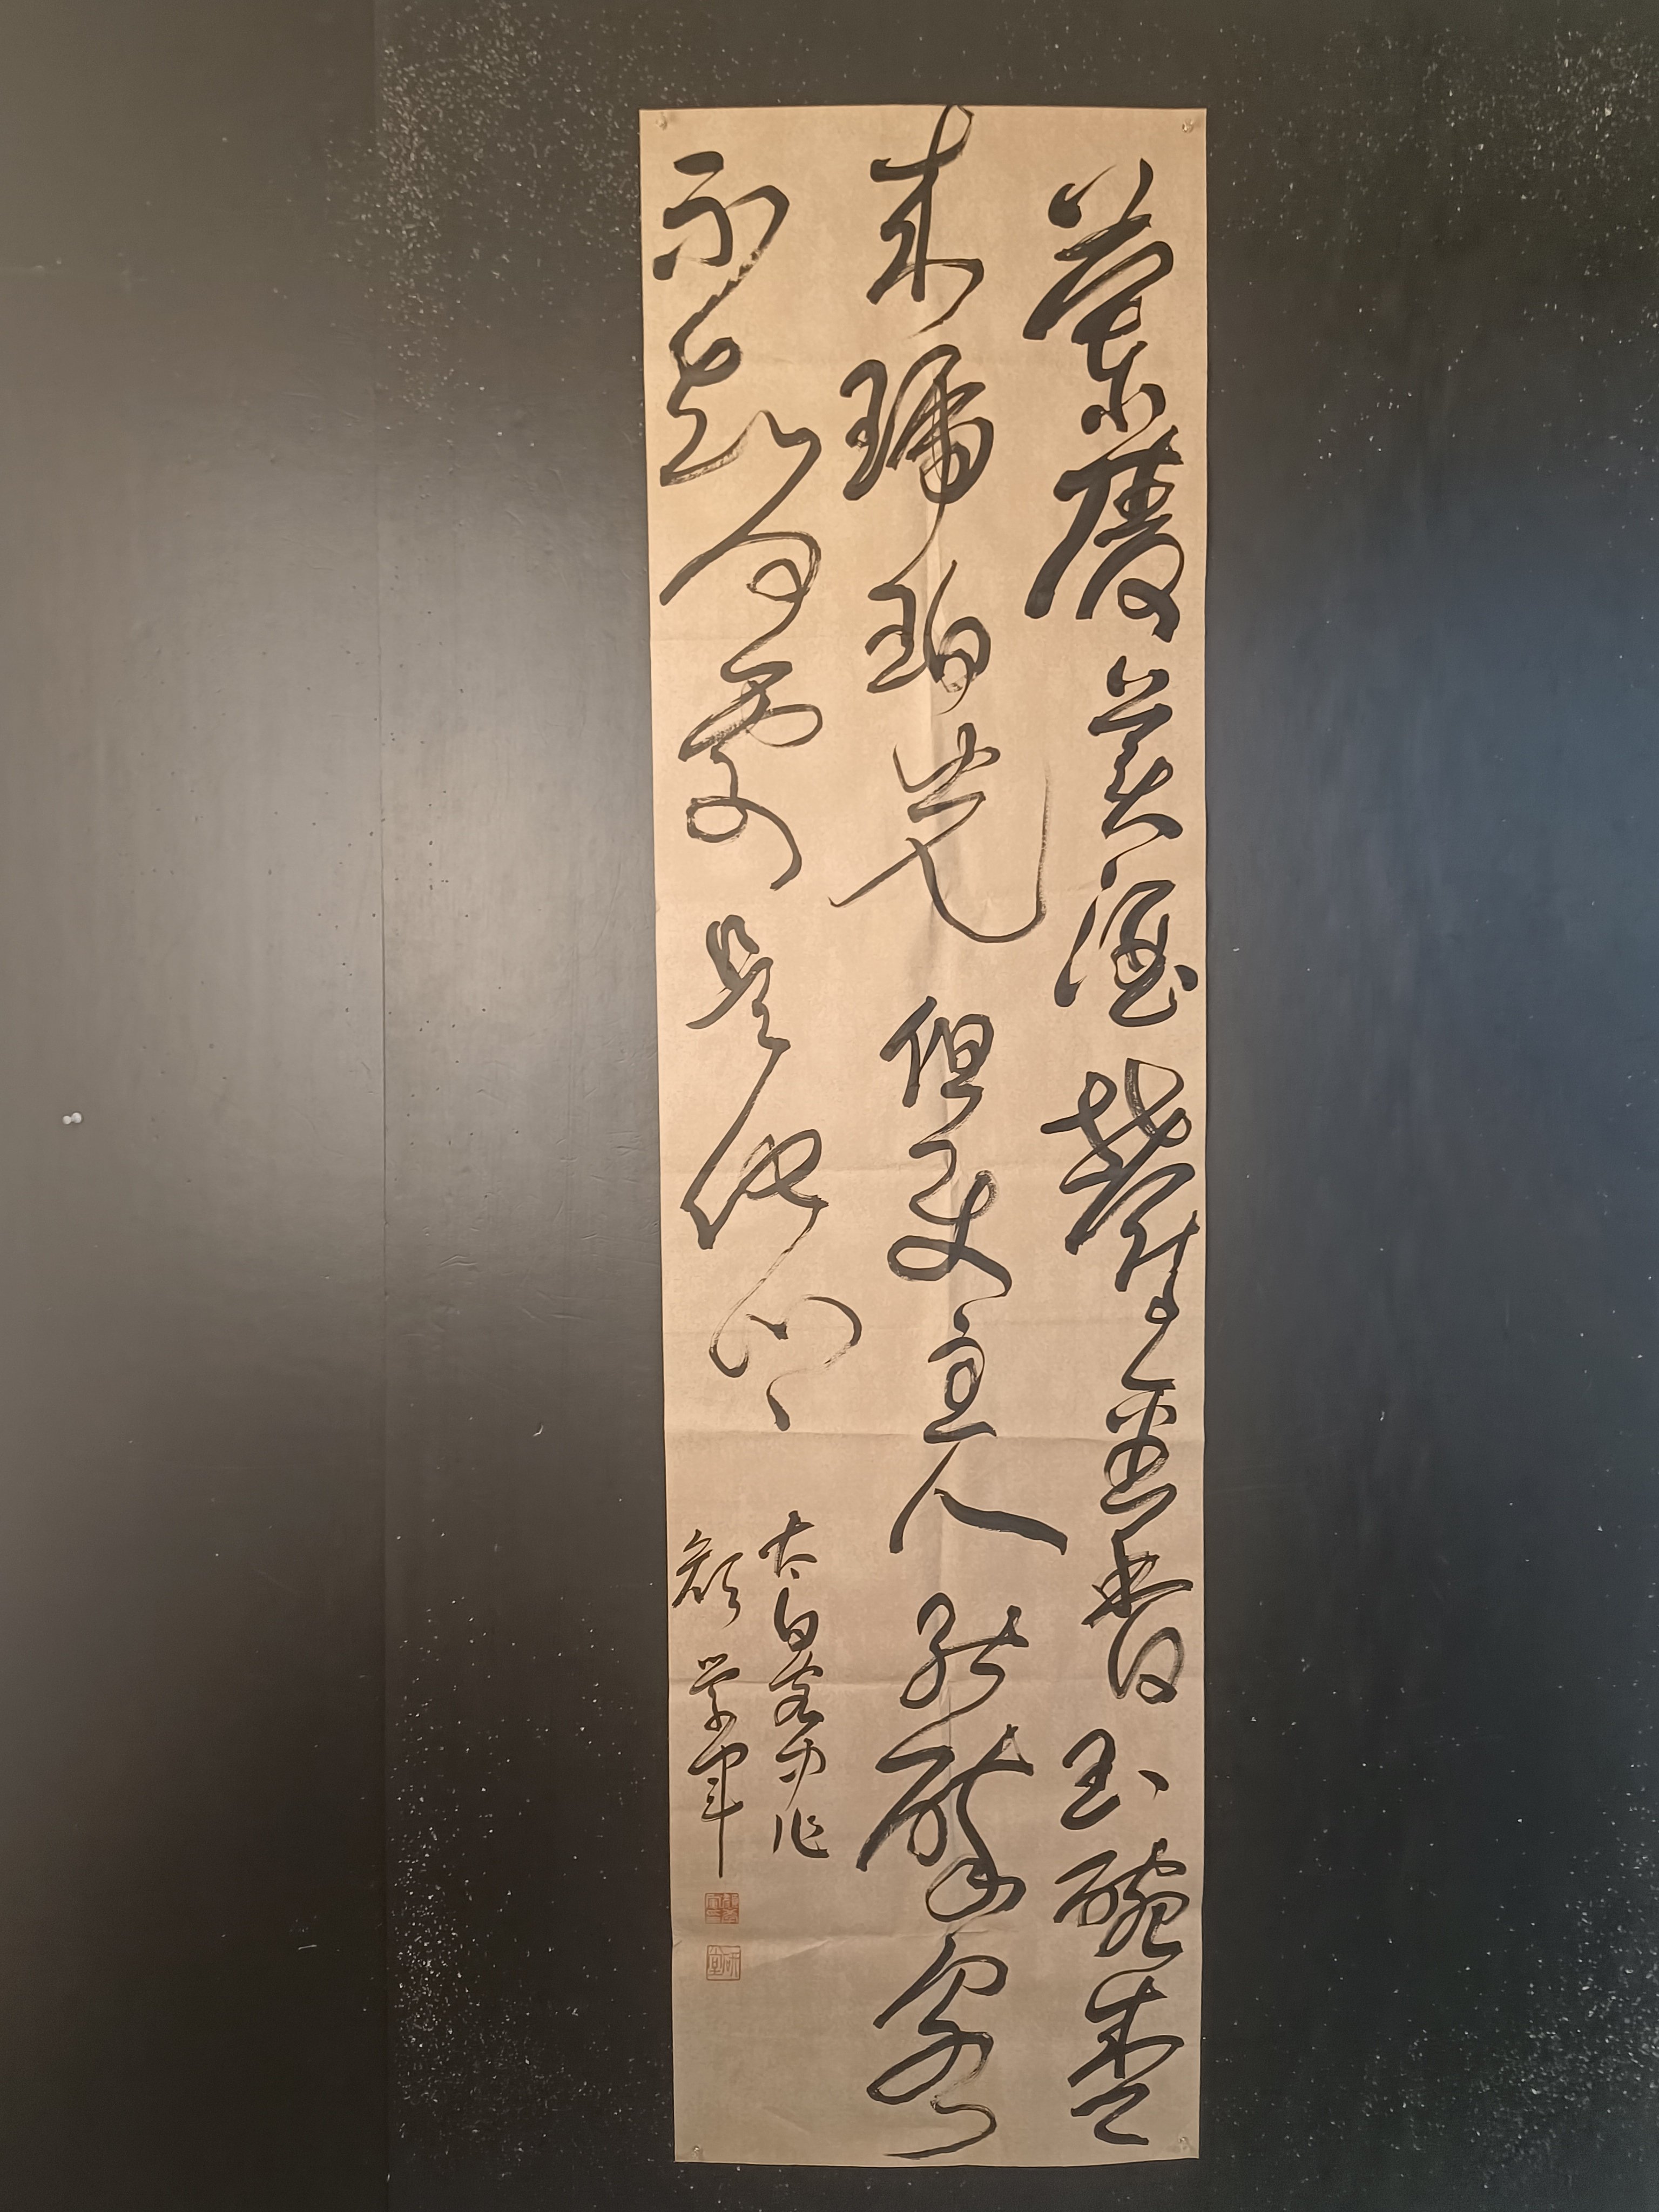 蘭陵美酒鬱金香玉碗盛
来琥珀光但使主人能醉客
不知何處是他鄉
太白客中作
顏学軍